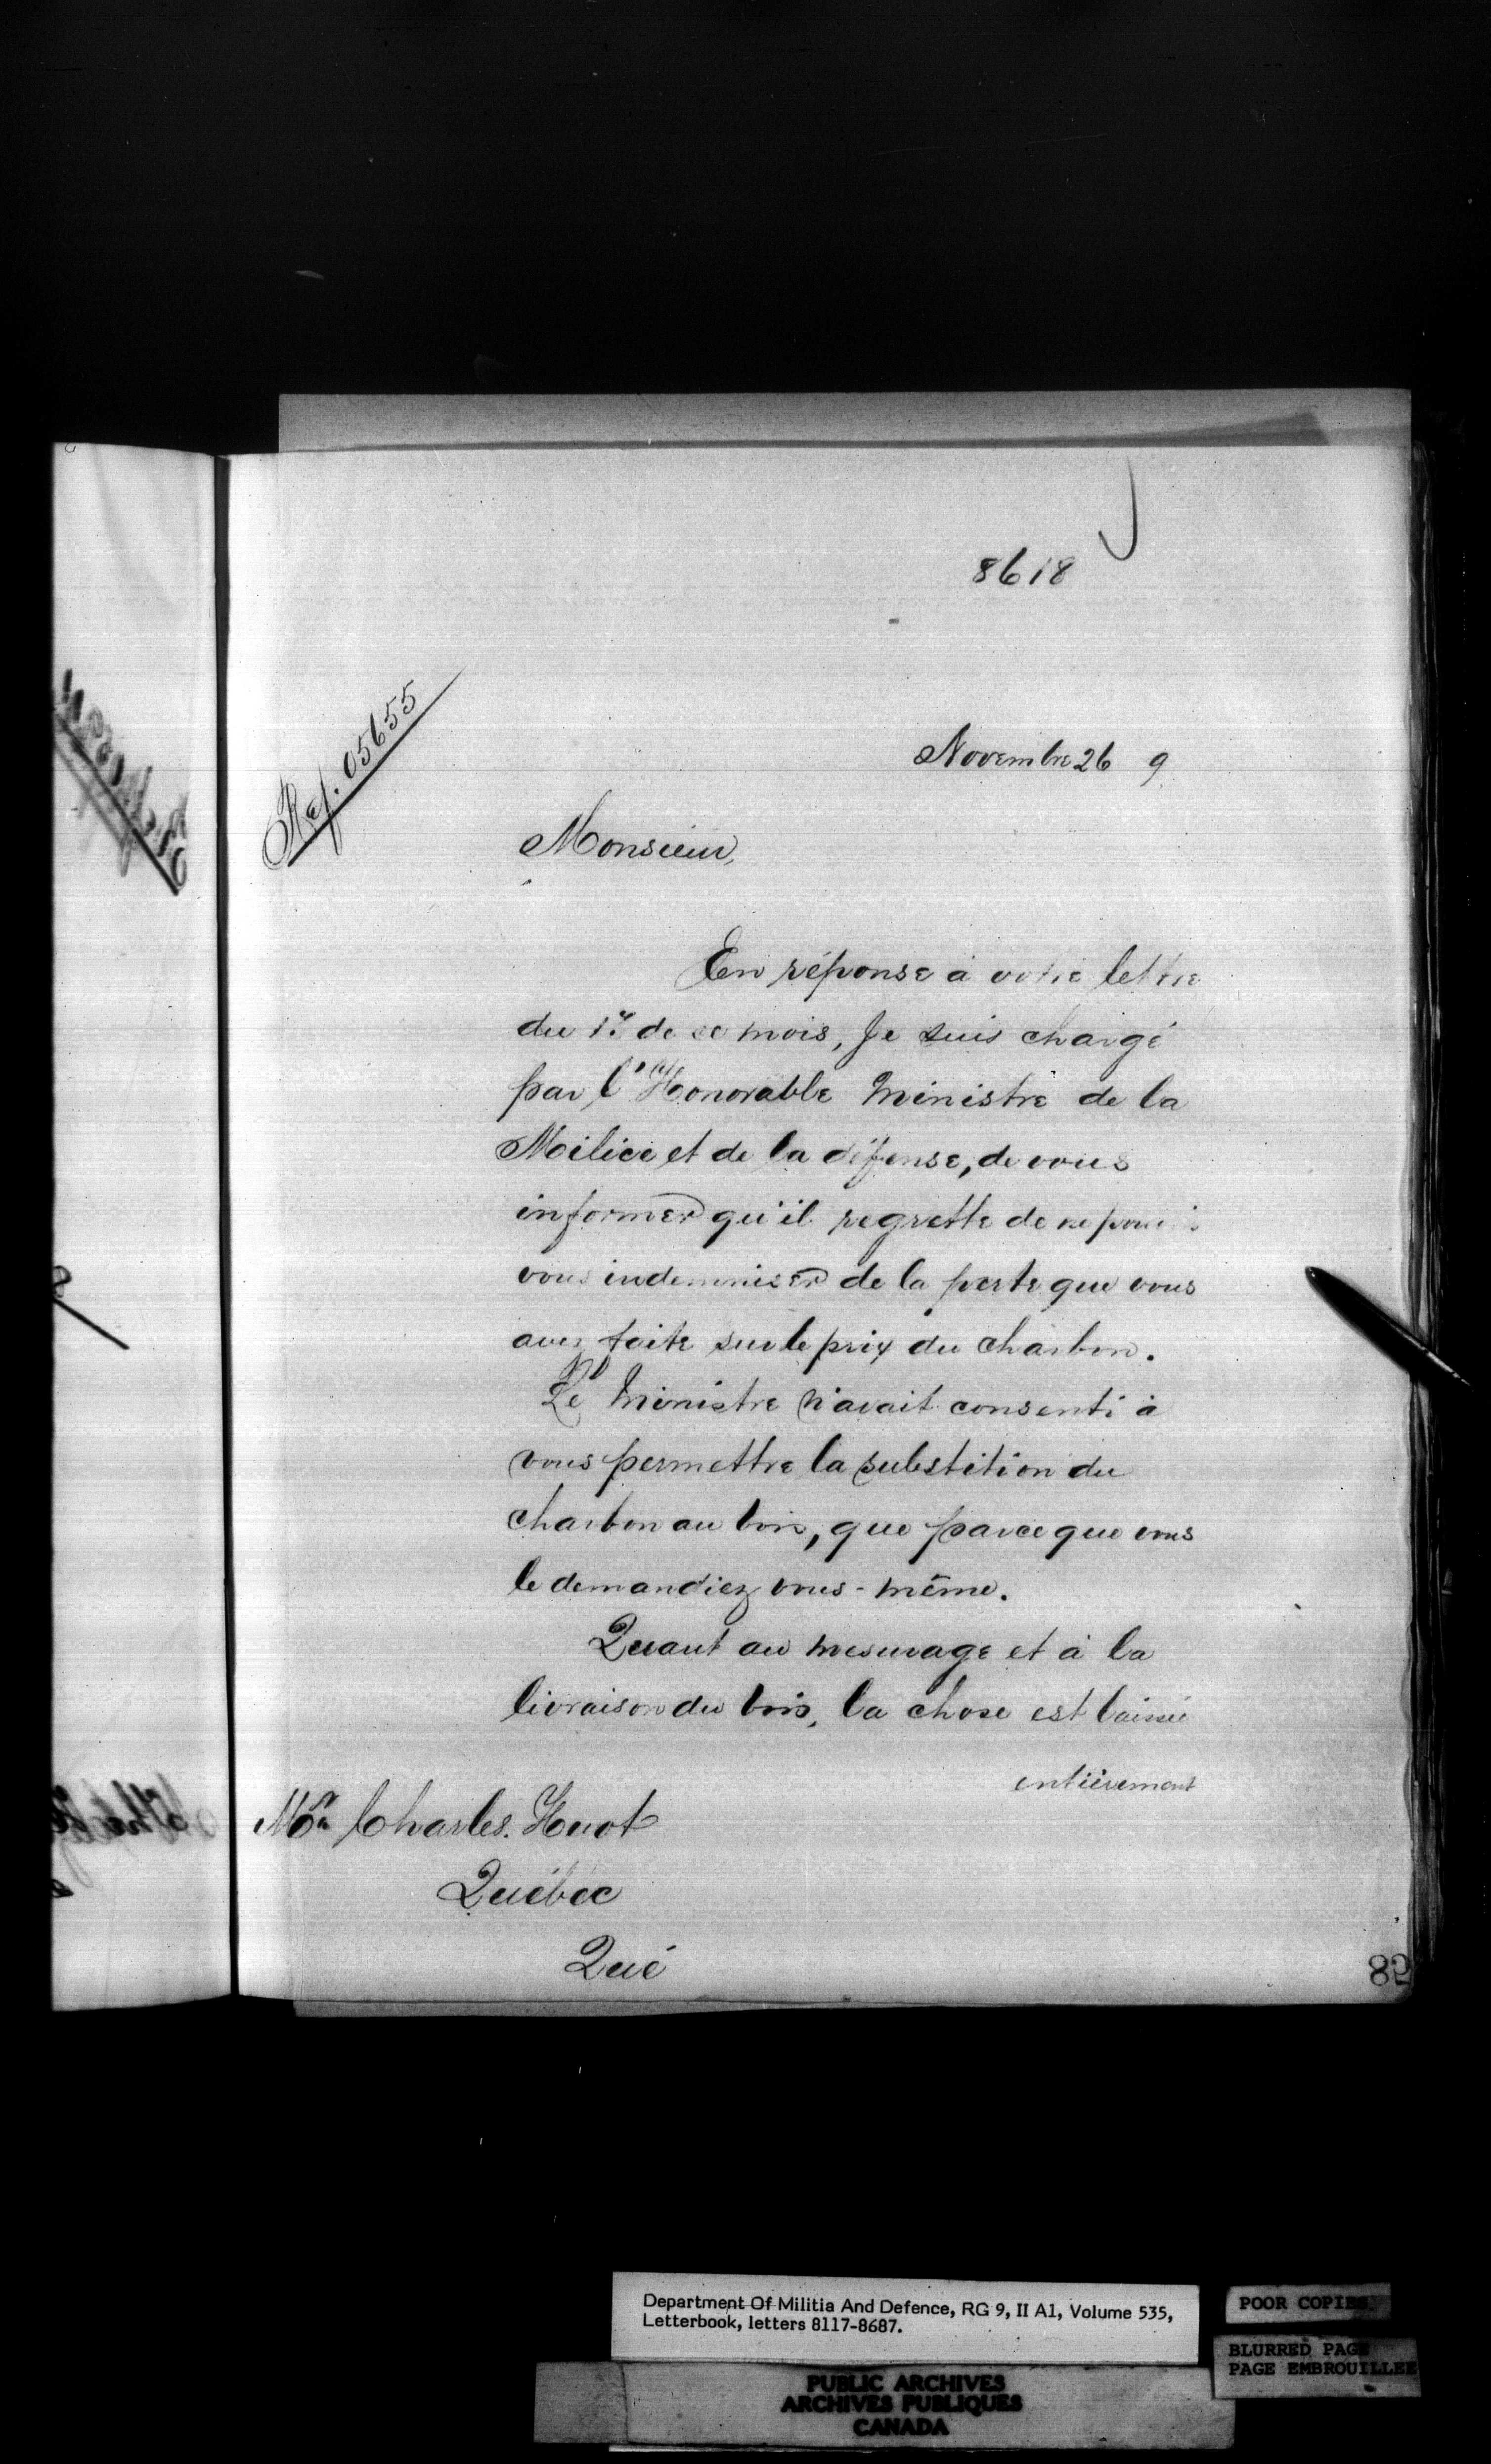 8618
Ref. 05655
Novembre 26 9
Monsieur,
En réponse à votre lettre
du 1er de ce mois, Je suis chargé
par l'Honorable Ministre de la
Milice et de la défense, de vous
informer qu'il regrette de ne pouvoir
vous indemniser de la perte que vous
avez faite sur le prix du charbon.
Le Ministre n'avait consenti à
vous permettre la substition du
charbon au bois, que parce que vous
le demandiez vous-même.
Quant au mesurage et à la
livraison du bois, la chose est laissée
entièrement
Mr Charles. Huot
Québec
Qué
82
Department Of Militia And Defence, RG 9, II A1, Volume 535,
Letterbook, letters 8117-8687.
POOR COPIES
BLURRED PAGE
PAGE EMBROUILLEE
PUBLIC ARCHIVES
ARCHIVES PUBLIQUES
CANADA